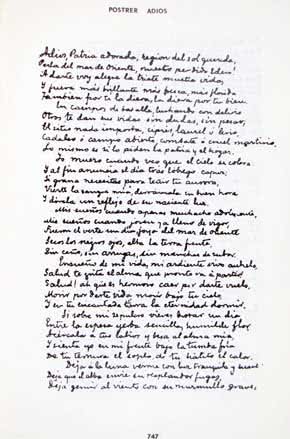 POSTRER ADIOS
Adios, Patria adorada, region del sol querida,
Perla del mar de Oriente, nuestro perdido Eden!
A darte voy alegre la triste mustia vida,
Y fuera más brillante más fresca, más florida
Tambien por ti la diera, la diera por tu bien.
En campos de batalla, luchando con delirio
Otros te dan sus vidas sin dudas, sin pesar;
El sitio nada importa, cipres, laurel ó lirio,
Cadalso ó campo abierto, combate ó cruel martirio,
Lo mismo es si lo piden la patria y el hogar.
Yo muero cuando veo que el cielo se colora
Y al fin anuncia el dia tras lobrego capuz;
Si grana necesitas para teñir tu aurora,
Vierte la sangre mia, derramala en buen hora
Y dorela un reflejo de su naciente luz.
Mis sueños cuando apenas muchacho adolescente,
Mis sueños cuando joven ya lleno de vigor
Fueron el verte un dia, joya del mar de oriente
Secos los negros ojos, alta la tersa frente,
Sin ceño, sin arrugas, sin manchas de rubor.
Ensueño de mi vida, mi ardiente vivo anhelo,
Salud te grita el alma que pronto va á partir!
Salud! ah que es hermoso caer por darte vuelo,
Morir por darte vida, morir bajo tu cielo,
Y en tu encantada tierra la eternidad dormir.
Si sobre mi sepulcro vieres brotar un dia
Entre la espesa yerba sencilla, humilde flor,
Acercala a tus labios y besa al alma mia,
Y sienta yo en mi frente bajo la tumba fria
De tu ternura el soplo, de tu hálito el calor.
Deja á la luna verme con luz tranquila y suave;
Deja que el alba envie su resplandor fugaz,
Deja gemir al viento con su murmullo grave,
747